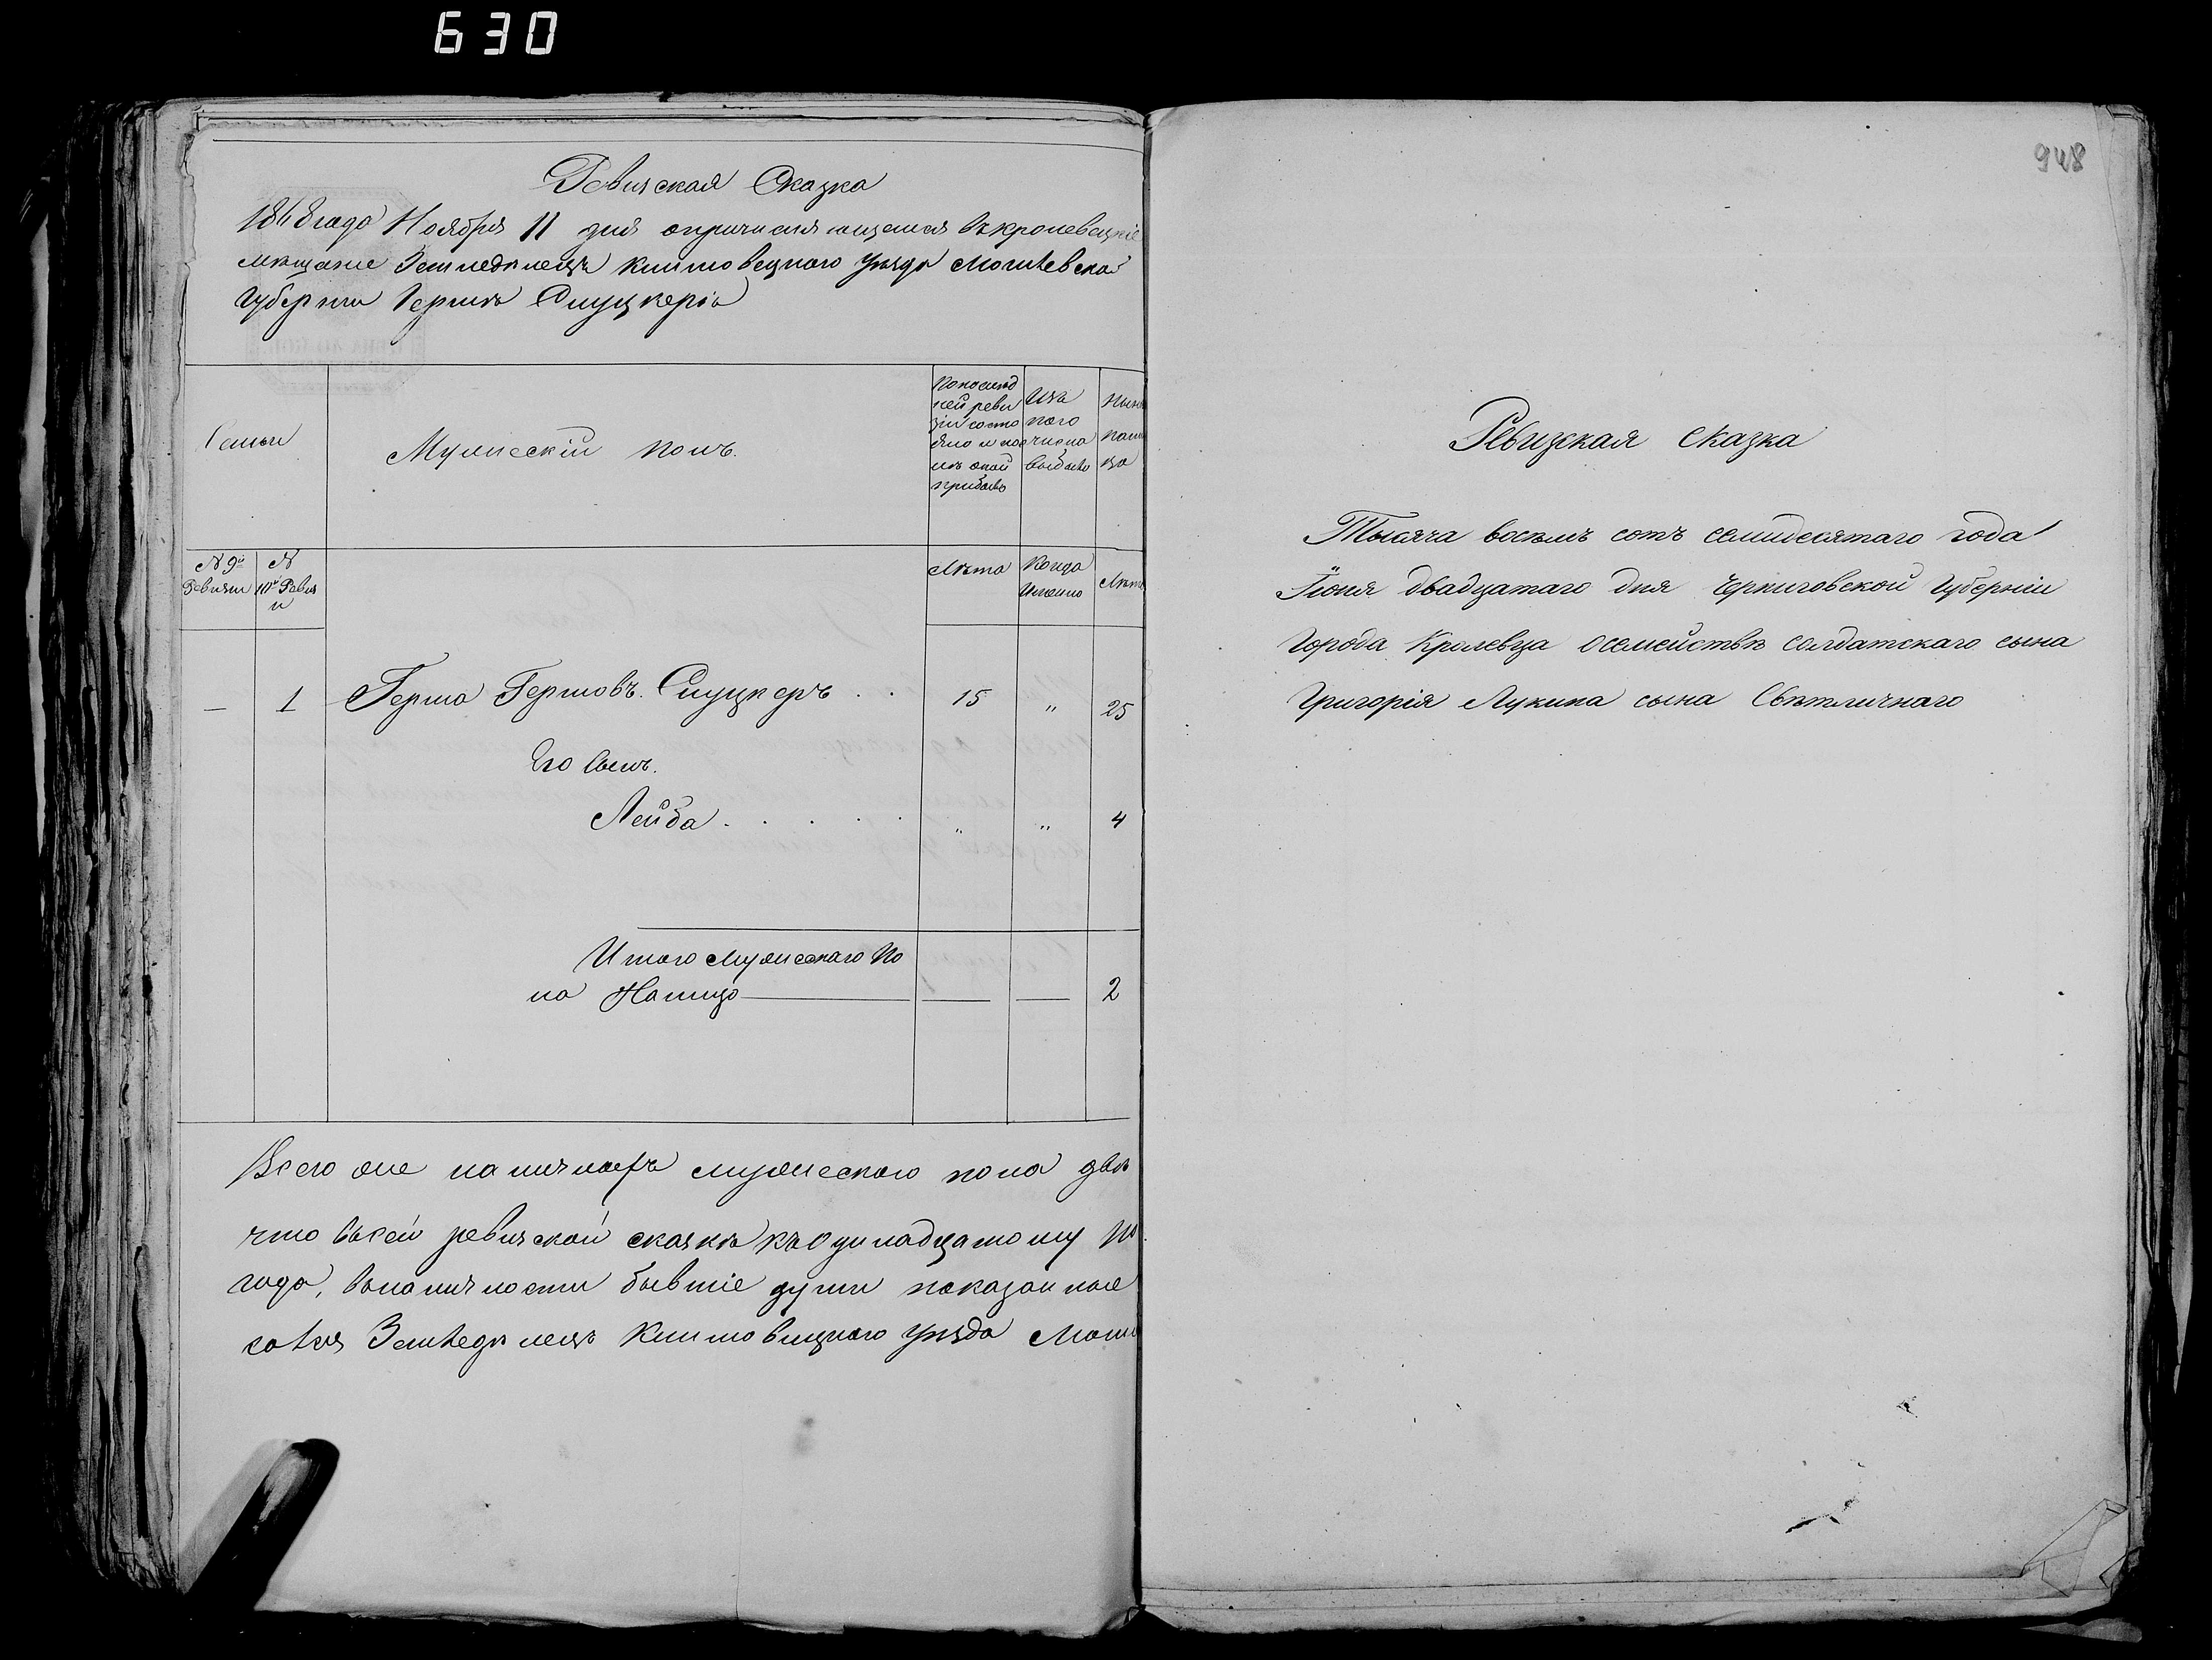 630
Ревизская Сказка
1868 года Ноября 11 дня о причисляющемся въ кролевецкіе
мещане Земледелецъ Климовецкого уезда Могилевской
Губернии Герша Слуцкеръ
Семьи
Мужескій полъ.
По послед
ней реви
зіи состо
яло и по
слѣ оной
прибыло
Изъ
того
числа
выбыло
Ныне
нали
цо
№ 9й
Ревизіи
№
10й Ревиз
и
Лѣта
Когда
Именно
Лѣта
— 1 Герша Гершовъ Слуцкеръ . . 15 " 25
Его Сынъ.
Лейба . . . . . " " 4
Итого Мужескаго По
ла На лицо — — 2
Всего оне наличныхъ мужескаго пола две
что въ сей ревизской сказкѣ къ одинадцатому Но
года, въ наличности бывшіе души показанные
Земледелецъ Климовицкого уезда Моги
948
Ревизская Сказка
Тысяча восемь сотъ семидесятаго года
Іюня двадцатаго дня Черниговской Губерніи
Города Кролевца о семействѣ солдатскаго сына
Григорія Лукина сына Свѣтличнаго